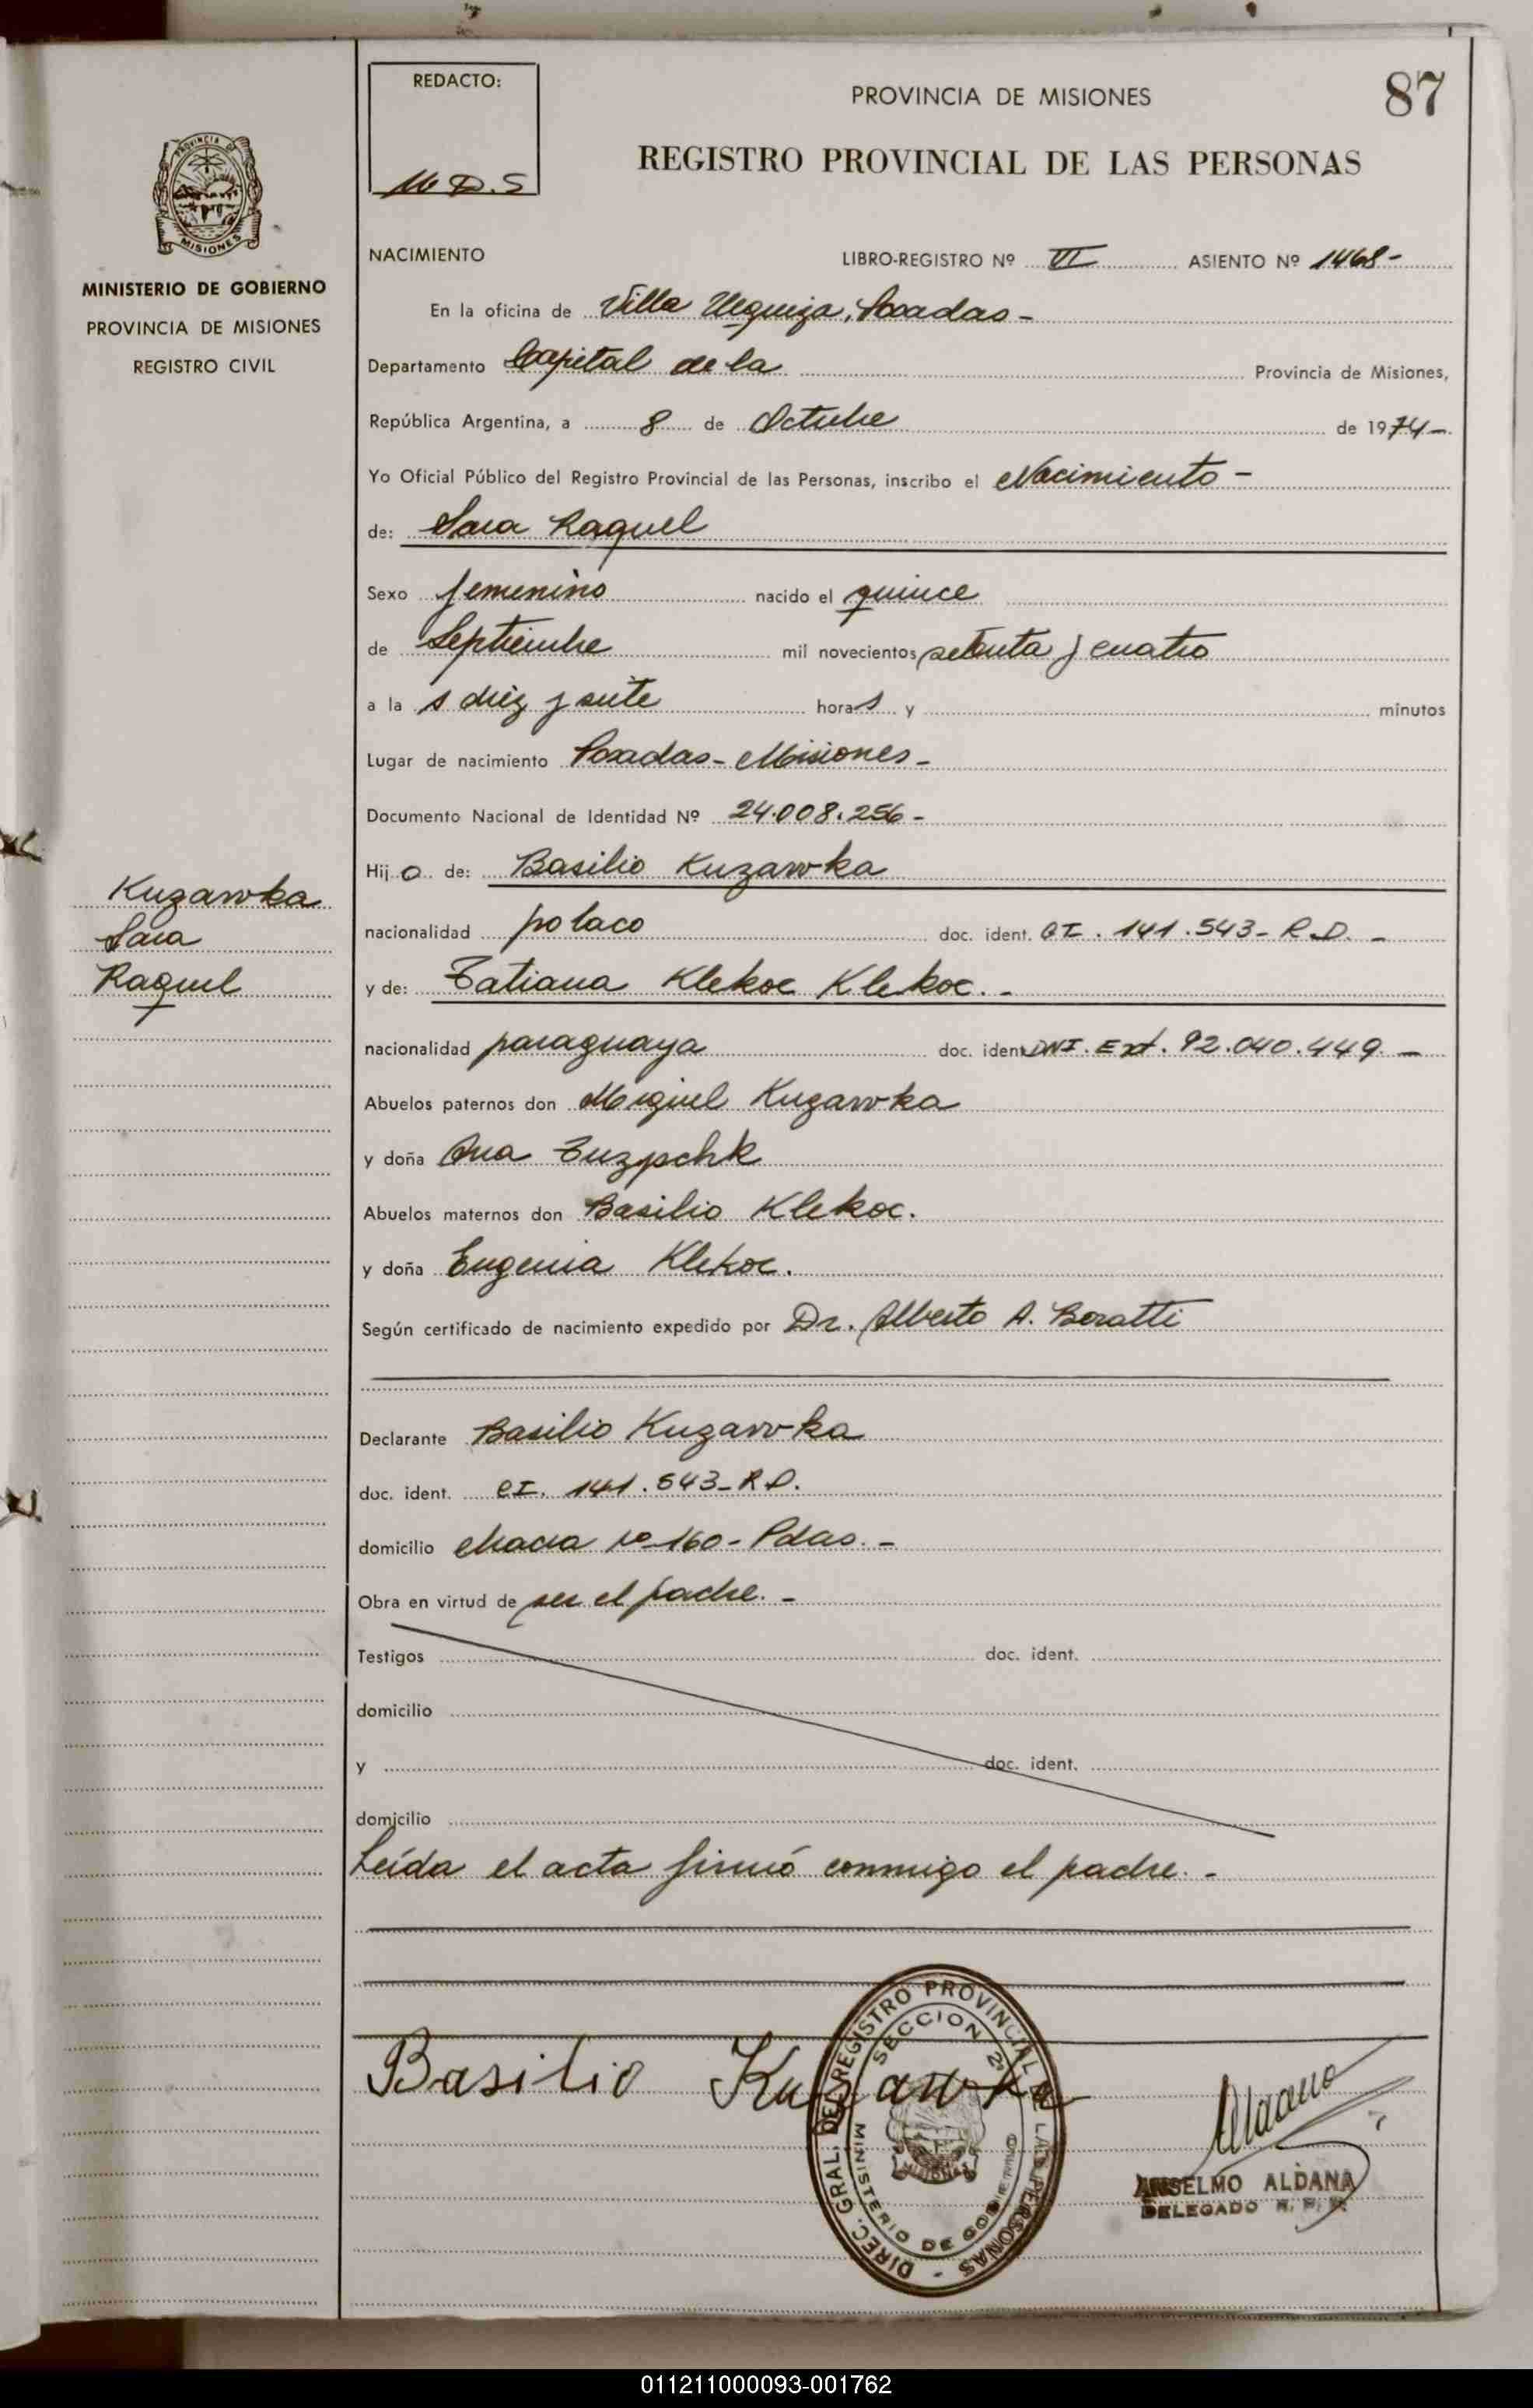 REDACTO:
M D.S
PROVINCIA DE MISIONES
87
REGISTRO PROVINCIAL DE LAS PERSONAS
PROVINCIA DE
MISIONES
MINISTERIO DE GOBIERNO
PROVINCIA DE MISIONES
REGISTRO CIVIL
NACIMIENTO LIBRO-REGISTRO Nº VI ASIENTO Nº 1468-
En la oficina de Villa Urquiza, Posadas-
Departamento Capital de la Provincia de Misiones,
República Argentina, a 8 de Octubre de 1974-
Yo Oficial Público del Registro Provincial de las Personas, inscribo el Nacimiento-
de: Sara Raquel
Sexo femenino nacido el quince
de Septiembre mil novecientos setenta y cuatro
a la s diez y siete horas y minutos
Lugar de nacimiento Posadas- Misiones-
Documento Nacional de Identidad Nº 24.008.256-
Hij a de: Basilio Kuzawka
Kuzawka
Sara
Raquel
nacionalidad polaco doc. ident. CI. 141.543- R.D. -
y de: Tatiana Klekoc Klekoc.-
nacionalidad paraguaya doc. ident DNI. Ext. 92.040.449.-
Abuelos paternos don Miguel Kuzawka
y doña Ana
Abuelos maternos don Basilio Klekoc.
y doña Eugenia Klekoc.
Según certificado de nacimiento expedido por Dr. Alberto A. Boratti
Declarante Basilio Kuzawka
doc. ident. CI. 141.543- R D.
domicilio chacra Nº 160- Pdas.-
Obra en virtud de ser el padre.-
Testigos doc. ident.
domicilio
y doc. ident.
domicilio
Leída el acta firmó conmigo el padre.-
Basilio Kuzawka
DIREC. GRAL. DEL REGISTRO PROVINCIAL DE LAS PERSONAS -
SECCION 2ª
MINISTERIO DE GOBIERNO
MISIONES
Aldana
ANSELMO ALDANA
DELEGADO R. P. P.
011211000093-001762